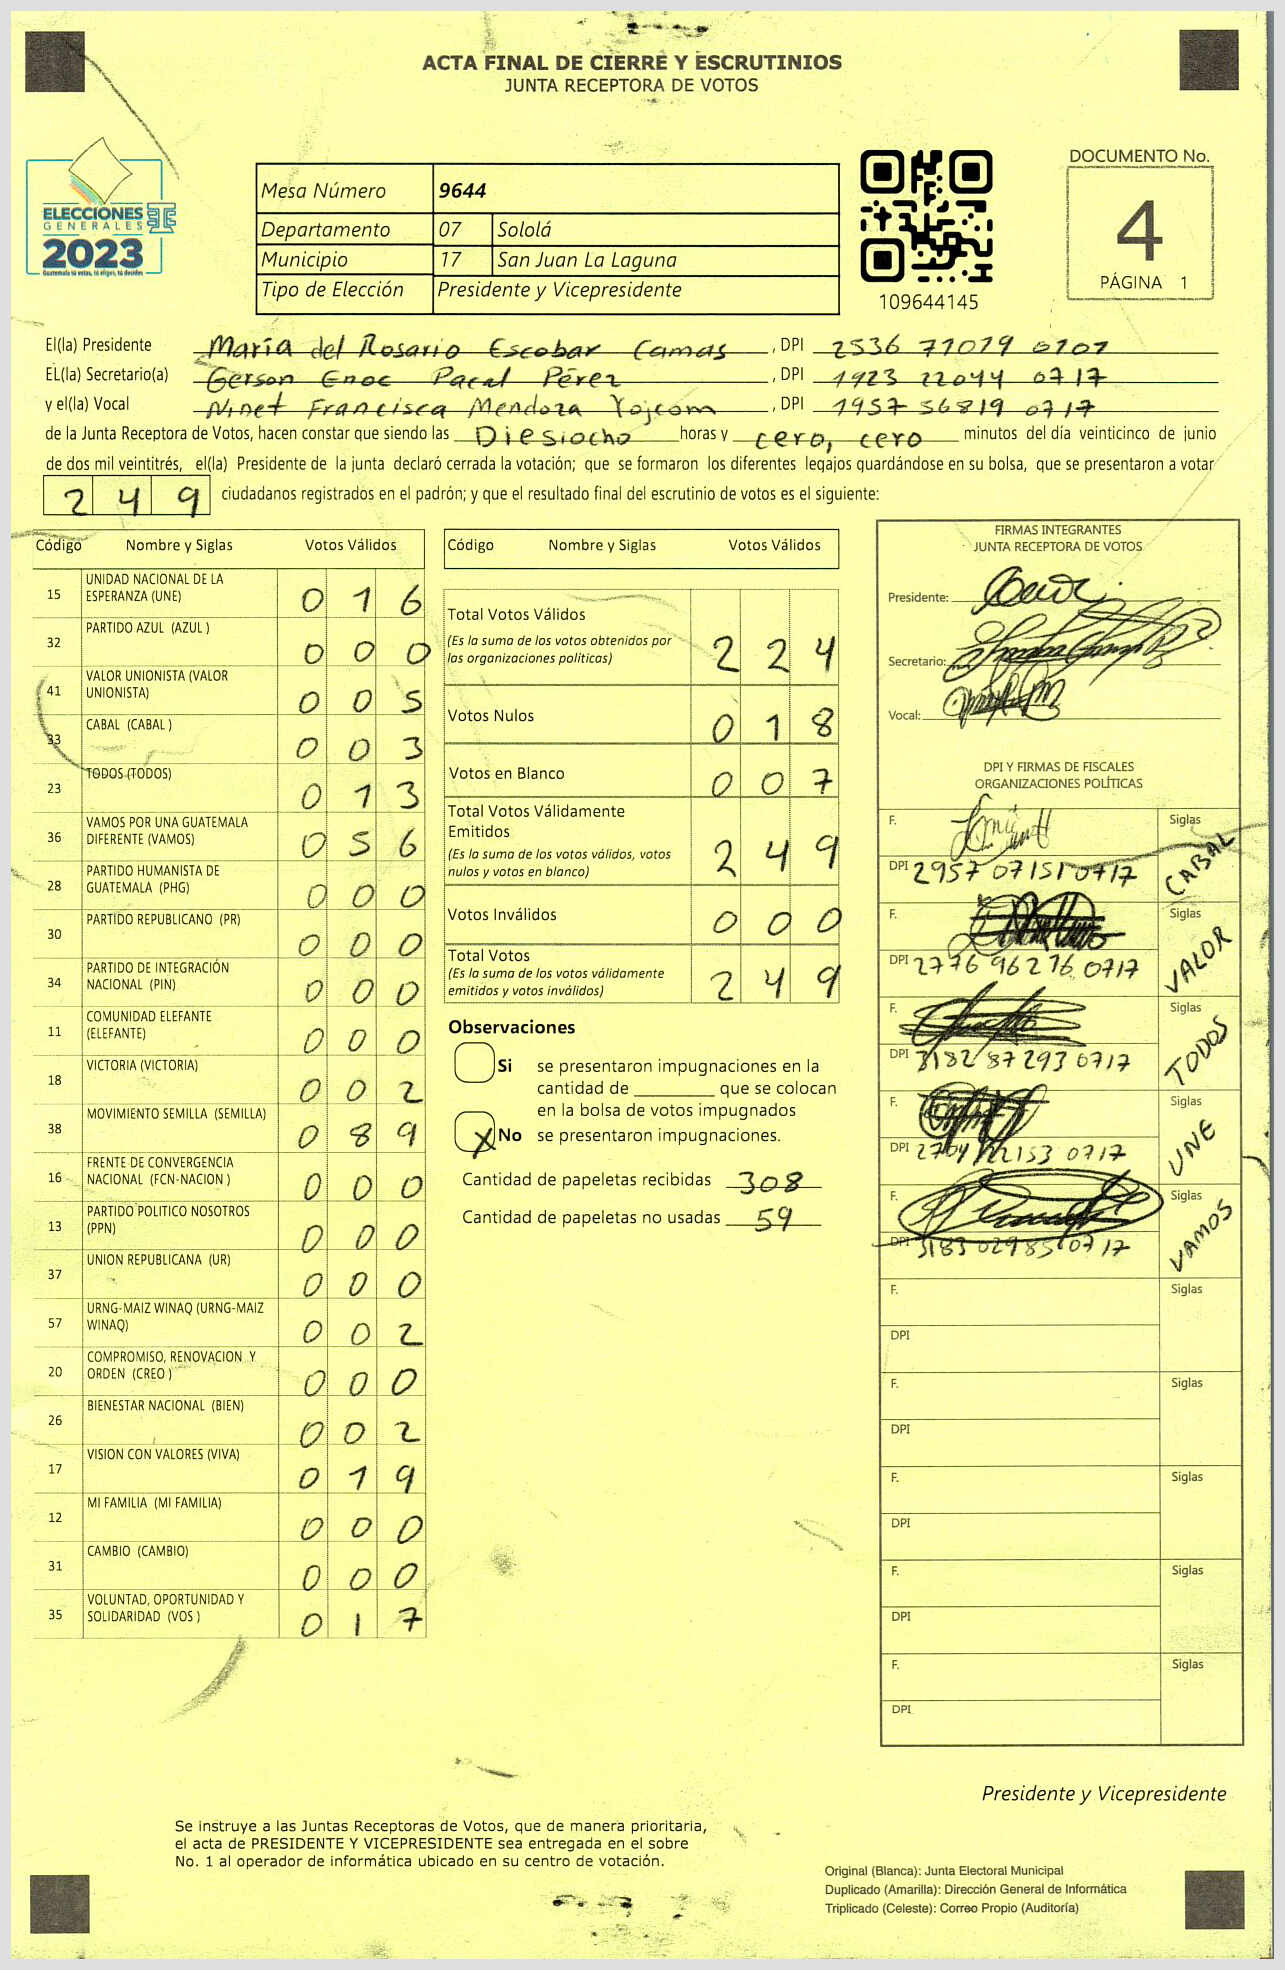 ACTA FINAL DE CIERRE Y ESCRUTINIOS
JUNTA RECEPTORA DE VOTOS
ELECCIONES
GENERALES
2023
Guatemala tú votas, tú eliges, tú decides
Mesa Número 9644
Departamento 07 Sololá
Municipio 17 San Juan La Laguna
Tipo de Elección Presidente y Vicepresidente
109644145
DOCUMENTO No.
4
PÁGINA 1
El(la) Presidente María del Rosario Escobar Camas , DPI 2536 71079 0707
EL(la) Secretario(a) Gerson Enoc Pacal Pérez , DPI 1923 22044 0717
y el(la) Vocal Ninet Francisca Mendoza Yojcom , DPI 1957 56819 0717
de la Junta Receptora de Votos, hacen constar que siendo las Diesiocho horas y cero, cero minutos del día veinticinco de junio
de dos mil veintitrés, el(la) Presidente de la junta declaró cerrada la votación; que se formaron los diferentes legajos guardándose en su bolsa, que se presentaron a votar
249 ciudadanos registrados en el padrón; y que el resultado final del escrutinio de votos es el siguiente:
Código Nombre y Siglas Votos Válidos
15 UNIDAD NACIONAL DE LA ESPERANZA (UNE) 016
32 PARTIDO AZUL (AZUL ) 000
41 VALOR UNIONISTA (VALOR UNIONISTA) 005
33 CABAL (CABAL ) 003
23 TODOS (TODOS) 013
36 VAMOS POR UNA GUATEMALA DIFERENTE (VAMOS) 056
28 PARTIDO HUMANISTA DE GUATEMALA (PHG) 000
30 PARTIDO REPUBLICANO (PR) 000
34 PARTIDO DE INTEGRACIÓN NACIONAL (PIN) 000
11 COMUNIDAD ELEFANTE (ELEFANTE) 000
18 VICTORIA (VICTORIA) 002
38 MOVIMIENTO SEMILLA (SEMILLA) 089
16 FRENTE DE CONVERGENCIA NACIONAL (FCN-NACION ) 000
13 PARTIDO POLITICO NOSOTROS (PPN) 000
37 UNION REPUBLICANA (UR) 000
57 URNG-MAIZ WINAQ (URNG-MAIZ WINAQ) 002
20 COMPROMISO, RENOVACION Y ORDEN (CREO ) 000
26 BIENESTAR NACIONAL (BIEN) 002
17 VISION CON VALORES (VIVA) 019
12 MI FAMILIA (MI FAMILIA) 000
31 CAMBIO (CAMBIO) 000
35 VOLUNTAD, OPORTUNIDAD Y SOLIDARIDAD (VOS ) 017
Código Nombre y Siglas Votos Válidos
Total Votos Válidos
(Es la suma de los votos obtenidos por
las organizaciones políticas) 224
Votos Nulos 018
Votos en Blanco 007
Total Votos Válidamente
Emitidos
(Es la suma de los votos válidos, votos
nulos y votos en blanco) 249
Votos Inválidos 000
Total Votos
(Es la suma de los votos válidamente
emitidos y votos inválidos) 249
Observaciones
Si se presentaron impugnaciones en la
cantidad de ________ que se colocan
en la bolsa de votos impugnados
X No se presentaron impugnaciones.
Cantidad de papeletas recibidas 308
Cantidad de papeletas no usadas 59
FIRMAS INTEGRANTES
JUNTA RECEPTORA DE VOTOS
Presidente:
Secretario:
Vocal:
DPI Y FIRMAS DE FISCALES
ORGANIZACIONES POLÍTICAS
F. Siglas CABAL
DPI 2957 07151 0717
F. Siglas VALOR
DPI 2776 96276 0717
F. Siglas TODOS
DPI 3182 87293 0717
F. Siglas UNE
DPI 0717
F. Siglas VAMOS
DPI 3183 02985 0717
F. Siglas
DPI
F. Siglas
DPI
F. Siglas
DPI
F. Siglas
DPI
F. Siglas
DPI
Presidente y Vicepresidente
Se instruye a las Juntas Receptoras de Votos, que de manera prioritaria,
el acta de PRESIDENTE Y VICEPRESIDENTE sea entregada en el sobre
No. 1 al operador de informática ubicado en su centro de votación.
Original (Blanca): Junta Electoral Municipal
Duplicado (Amarilla): Dirección General de Informática
Triplicado (Celeste): Correo Propio (Auditoría)